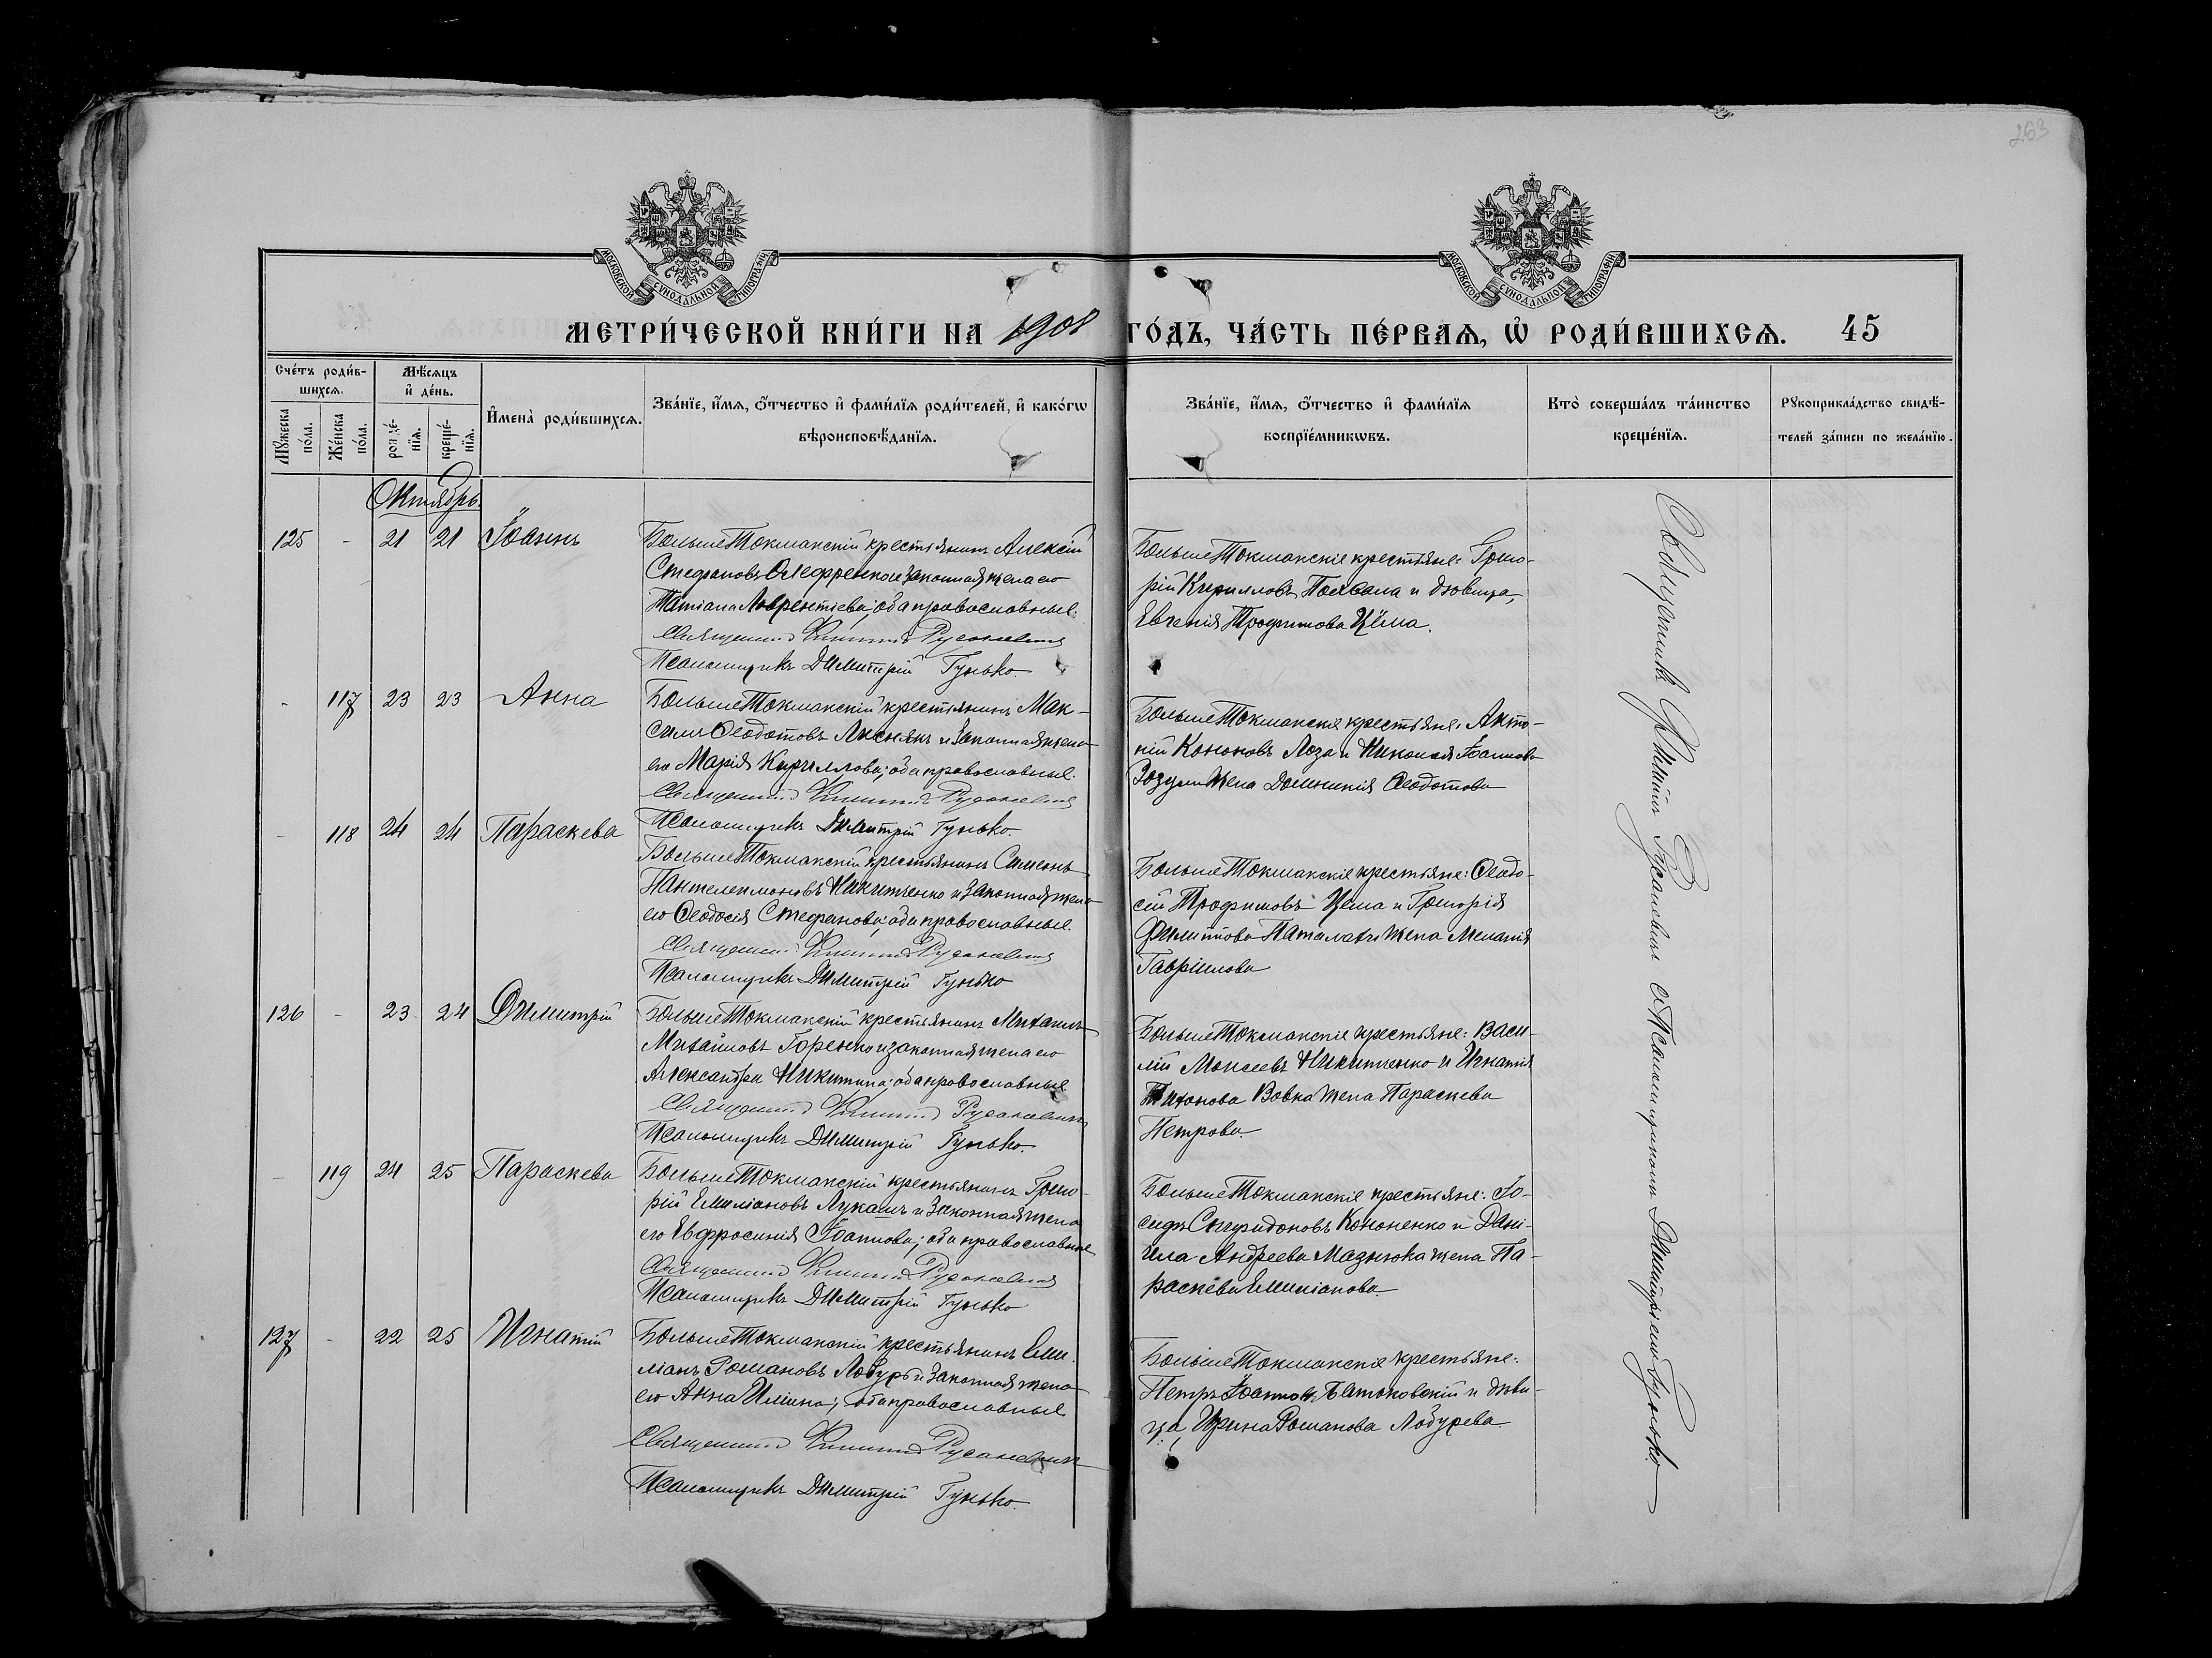 263
МОСКОВСКОЙ СѴНОДАЛЬНОЙ ТИПОГРАФІИ
МОСКОВСКОЙ СѴНОДАЛЬНОЙ ТИПОГРАФІИ
МЕТРИ́ЧЕСКОЙ КНИ́ГИ НА 1908 ГО́ДЪ, ЧА́СТЬ ПЕ́РВАѦ, Ѡ҆ РОДИ́ВШИХСѦ. 45
Сче́тъ роди́в-
шихсѧ.
Мꙋ́жеска по́ла.
Же́нска по́ла.
Мѣ́сѧцъ
и҆ де́нь.
рожде́-
нїѧ.
креще́-
нїѧ.
И҆мена̀ роди́вшихсѧ.
Зва́нїе, и҆́мѧ, ѻ҆́тчество и҆ фами́лїѧ роди́телей, и҆ како́гѡ
вѣроисповѣ́данїѧ.
Зва́нїе, и҆́мѧ, ѻ҆́тчество и҆ фами́лїѧ
воспрїе́мникѡвъ.
Кто̀ соверша́лъ та́инство
креще́нїѧ.
Рꙋкоприкла́дство свидѣ́-
телей за́писи по жела́нїю.
Октябрь.
125 - 21 21 Іоаннъ
БольшеТокмакскій крестьянинъ Алексій
Стефановъ Олефренко и законная жена его
Татіана Лаврентіева; оба православные.
Священникъ Филиппъ Русаневичъ
Псаломщикъ Димитрій Гунько.
БольшеТокмакскіе крестьяне: Григо-
рій Кирилловъ и дѣвица,
Евгенія Трофимова Цёма.
- 117 23 23 Анна
БольшеТокмакскій крестьянинъ Мак-
симъ Ѳеодотовъ Лиснякъ и законная жена
его Марія Кириллова; оба православные.
Священникъ Филиппъ Русаневичъ
Псаломщикъ Димитрій Гунько.
БольшеТокмакскіе крестьяне: Анто-
ній Кононовъ Лоза и Николая Іоаннова
Зозули жена Домникія Ѳеодотова
- 118 24 24 Параскева
БольшеТокмакскій крестьянинъ Симеонъ
Пантелеимоновъ Никитченко и законная жена
его Ѳеодосія Стефанова; оба православные.
Священникъ Филиппъ Русаневичъ
Псаломщикъ Димитрій Гунько
БольшеТокмакскіе крестьяне: Ѳеодо-
сій Трофимовъ Цема и Григорія
Филиппова Паталахи жена Меланія
Гавріилова
126 - 23 24 Димитрій
БольшеТокмакскій крестьянинъ Михаилъ
Михаиловъ Горенко и законная жена его
Александра Никитина; оба православные.
Священникъ Филиппъ Русаневичъ
Псаломщикъ Димитрій Гунько.
БольшеТокмакскіе крестьяне: Васи-
лій Моисеевъ Никитченко и Игнатія
Тихонова Вовка жена Параскева
Петрова.
- 119 24 25 Параскева
БольшеТокмакскій крестьянинъ Григо-
рій Емиліановъ Лукашъ и законная жена
его Евфросинія Іоаннова; оба православные
Священникъ Филиппъ Русаневичъ
Псаломщикъ Димитрій Гунько
БольшеТокмакскіе крестьяне: Іо-
сифъ Спиридоновъ Кононенко и Дані-
ила Андреева Мазнюка жена Па-
раскева Емиліанова.
127 - 22 25 Игнатій
БольшеТокмакскій крестьянинъ Еми-
ліанъ Романовъ Лобурь и законная жена
его Анна Ильина; оба православные
Священникъ Филиппъ Русаневичъ
Псаломщикъ Димитрій Гунько.
БольшеТокмакскіе крестьяне:
Петръ Іоанновъ и дѣви-
ца, Ирина Романова Лобурева.
Священникъ Филиппъ Русаневичъ съ Псаломщикомъ Димитріемъ Гунько